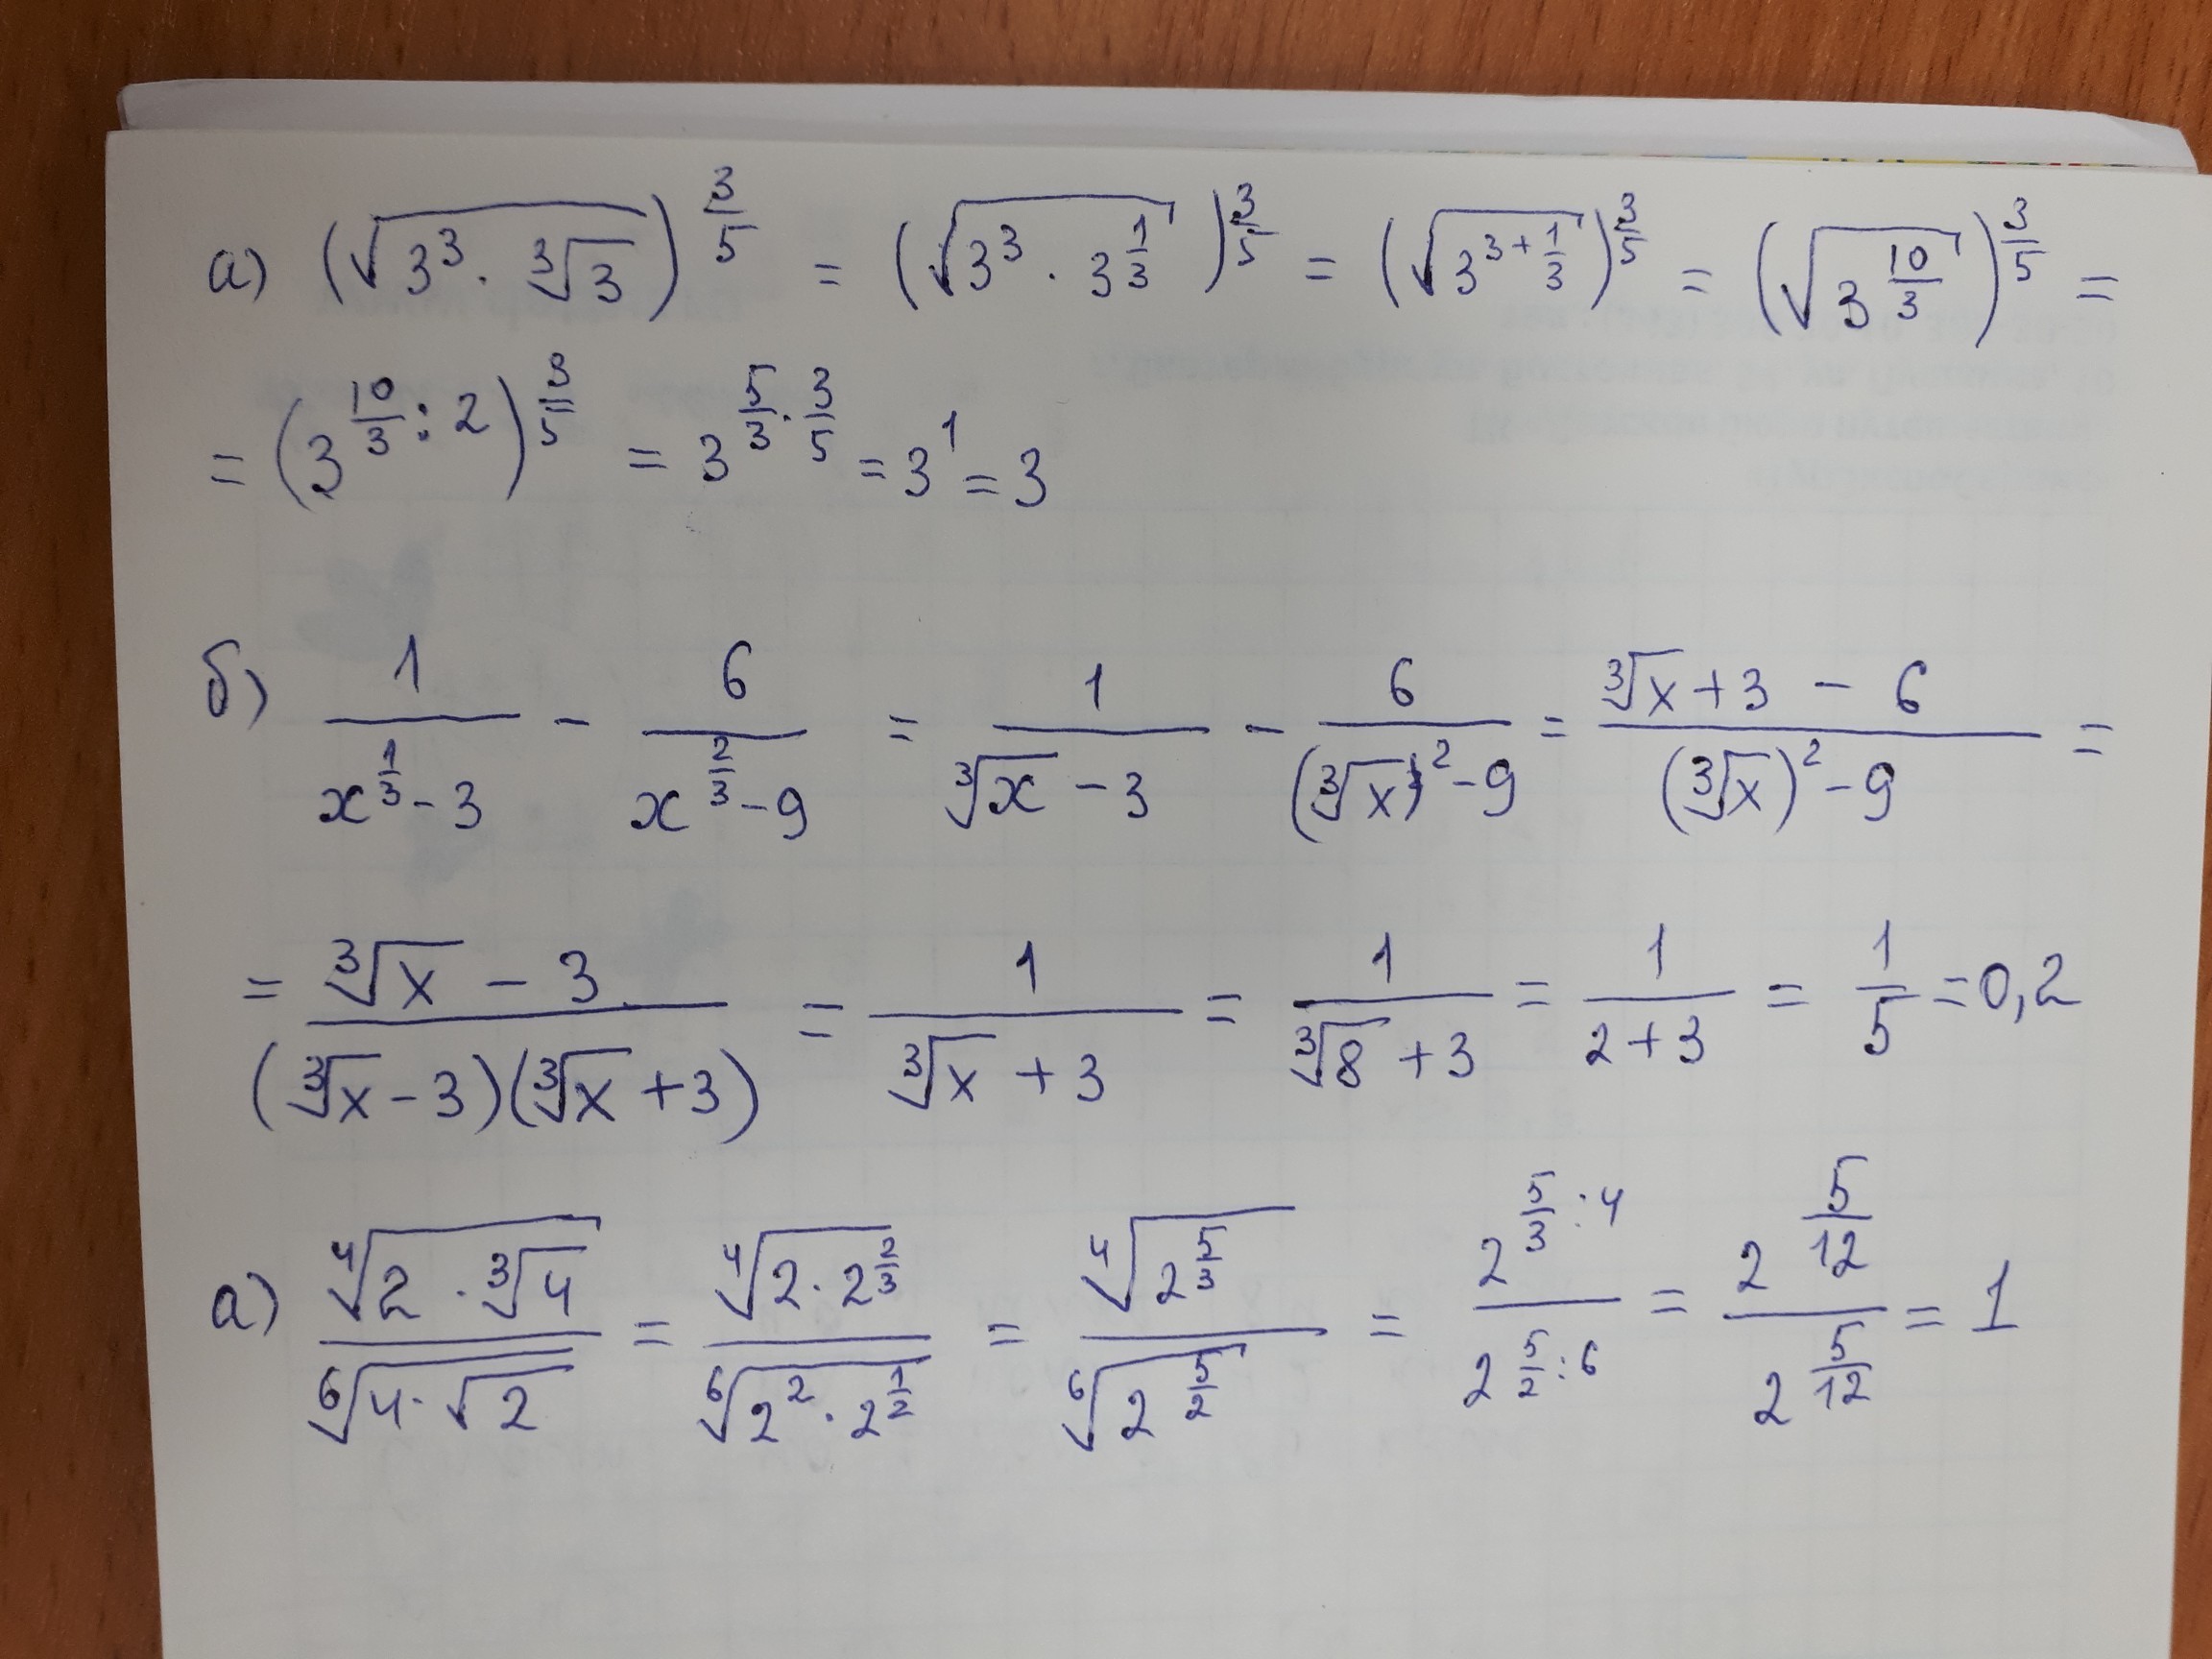 а) (√(3³ · ∛3))^(3/5) = (√(3³ · 3^(1/3)))^(3/5) = (√(3^(3 + 1/3)))^(3/5) = (√(3^(10/3)))^(3/5) =
= (3^(10/3 : 2))^(3/5) = 3^(5/3 · 3/5) = 3¹ = 3
б) 1/(x^(1/3) - 3) - 6/(x^(2/3) - 9) = 1/(∛x - 3) - 6/((∛x)² - 9) = (∛x + 3 - 6)/((∛x)² - 9) =
= (∛x - 3)/((∛x - 3)(∛x + 3)) = 1/(∛x + 3) = 1/(∛8 + 3) = 1/(2 + 3) = 1/5 = 0,2
а) ∜(2 · ∛4)/⁶√(4 · √2) = ∜(2 · 2^(2/3))/⁶√(2² · 2^(1/2)) = ∜(2^(5/3))/⁶√(2^(5/2)) = 2^(5/3 : 4)/2^(5/2 : 6) = 2^(5/12)/2^(5/12) = 1